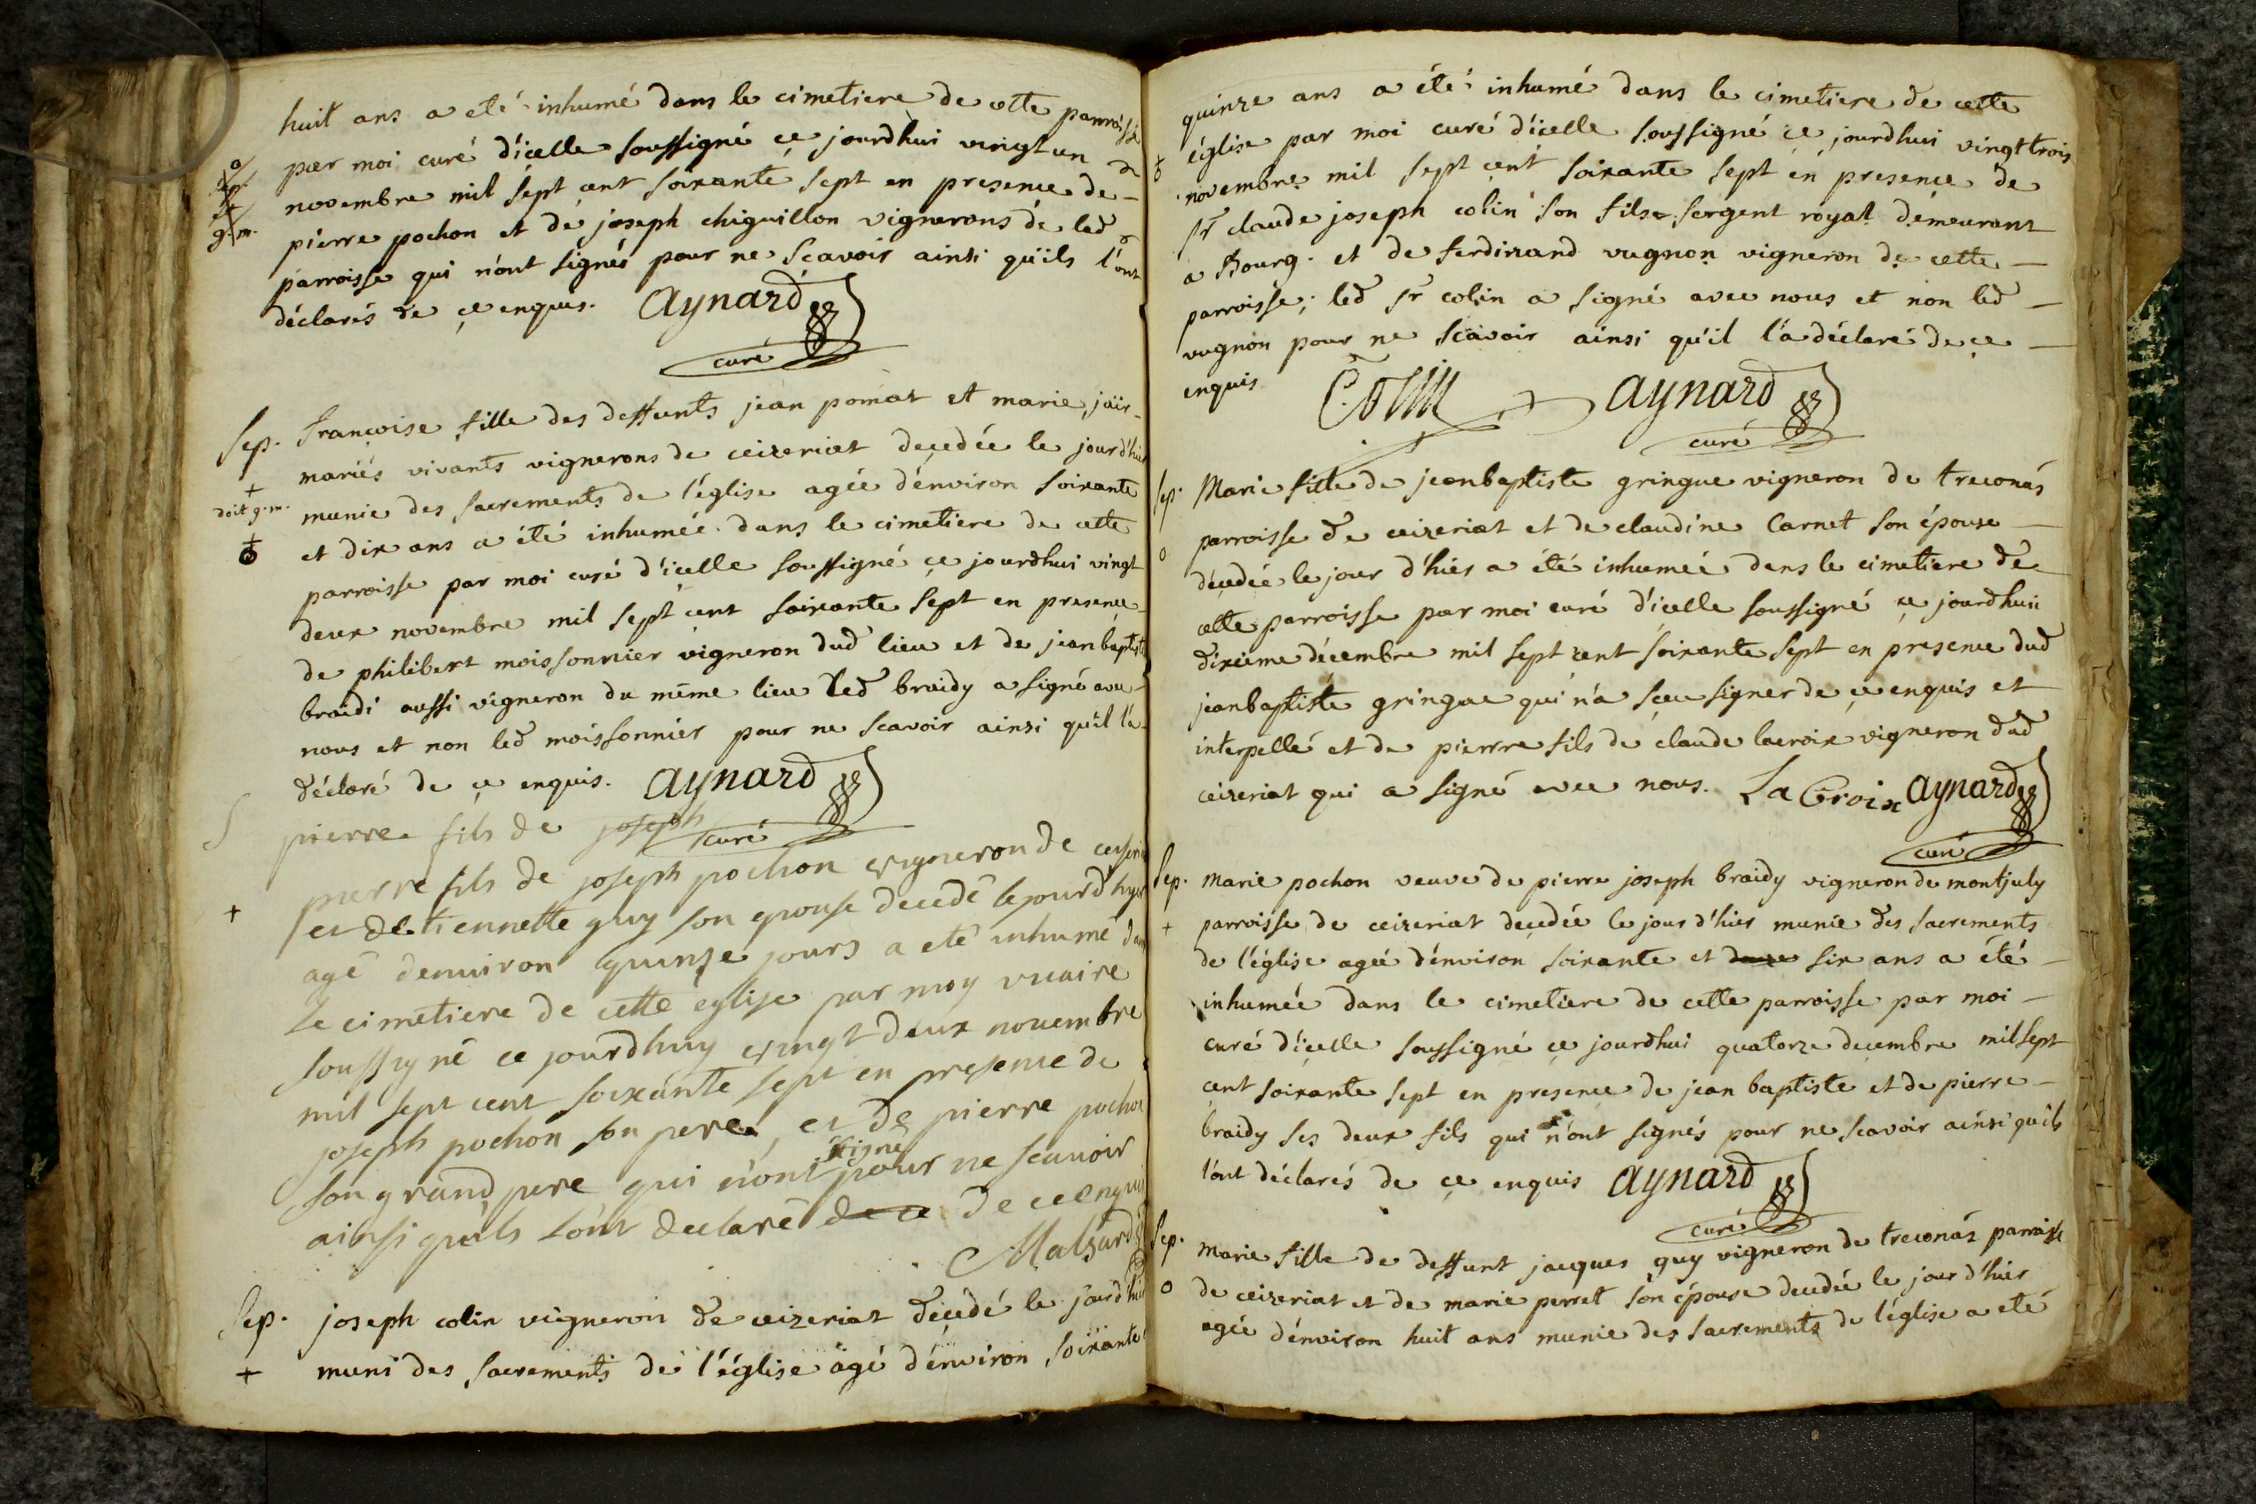 huit ans a eté inhumé dans le cimetiere de cette parroisse
par moi curé d'icelle soussigné ce jourdhui vingt un de
novembre mil sept cent soixante sept en presence de
pierre pochon et de joseph chiguillon vignerons de led
parroisse qui n'ont signés pour ne scavoir ainsi qu'ils l'ont
déclarés de ce enquis. aynard
curé
Sep. françoise fille des deffunts jean pomat et marie
mariés vivants vignerons de ceizeriat decedée le jour d'hier
+
doit g. m. munie des sacrements de l'église agée d'environ soixante
et dix ans a été inhumée dans le cimetiere de cette
parroisse par moi curé d'icelle soussigné ce jourdhui vingt
deux novembre mil sept cent soixante sept en presence
de philibert moissonnier vigneron dud lieu et de jean baptiste
braidi aussi vigneron du même lieu led braidy a signé avec
nous et non led moissonnier pour ne scavoir ainsi qu'il l'a
déclaré de ce enquis. aynard
curé
pierre fils de joseph
pierre fils de joseph pochon vigneron de
+ et de tiennette guy son epouse decedé le jourdhyer
agé denuiron quinze jours a eté inhumé dans
le cimetiere de cette eglise par moy vicaire
soussigné ce jourdhuy vingt deux nouembre
mil sept cent soixante sept en presence de
joseph pochon son pere, et de pierre pochon
son grand pere qui n'ont signé pour ne scauoir
ainsi quils l'ont declaré de ce De ce enquis
Sep. joseph colin vigneron de ceizeriat décédé le jourd'hier
+ muni des sacrements de l'église âgé d'environ soixante
quinze ans a été inhumé dans le cimetiere de cette
église par moi curé d'icelle soussigné ce jourdhui vingt trois
novembre mil sept cent soixante sept en presence de
sr claude joseph colin son fils sergent royal demeurant
a Bourg. et de ferdinand vugnon vigneron de cette
parroisse; led sr colin a signé avec nous et non led
vugnon pour ne scavoir ainsi qu'il l'a déclaré de ce
enquis Colin aynard
curé
Sep. Marie fille de jeanbaptiste gringue vigneron de treconás
parroisse de ceizeriat et de claudine Carnet son épouse
o décedée le jour d'hier a été inhumée dans le cimetiere de
cette parroisse par moi curé d'icelle soussigné ce jourdhui
dixieme décembre mil sept cent soixante sept en presence dud
jeanbaptiste gringue qui n'a sceu signer de ce enquis et
interpellé et de pierrre fils de claude lacroix vigneron dud
ceizeriat qui a signé avec nous. La Croix aynard
curé
Sep. marie pochon veuve de pierre joseph braidy vigneron de montjuly
+ parroisse de ceizeriat decedée le jour d'hier munie des sacrements
de l'église agée d'environ soixante et douze six ans a été
inhumée dans le cimetiere de cette parroisse par moi
curé d'icelle soussigné ce jourdhui quatorze decembre mil sept
cent soixante sept en presence de jean baptiste et de pierre
braidy ses deux fils qui n'ont signés pour ne scavoir ainsi qu'ils
l'ont déclarés de ce enquis aynard
curé
Sep. marie fille de deffunt jacques guy vigneron de treconás parroisse
o de ceizeriat et de marie perret son épouse decedée le jour d'hier
agée d'environ huit ans munie des sacrements de l'église a eté